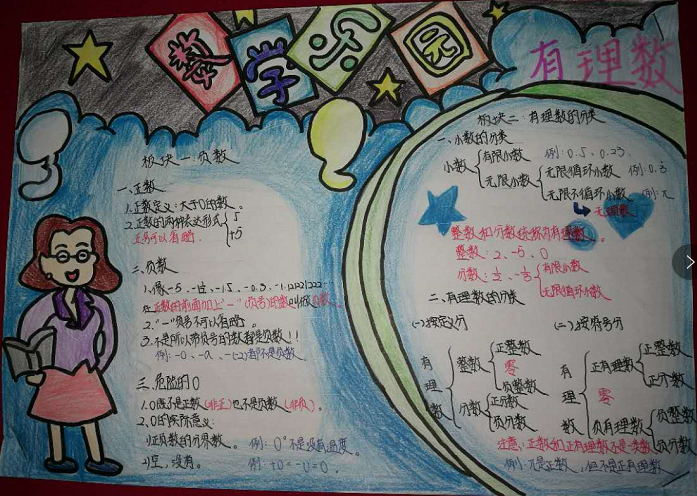 数学乐园
有理数
板块一:负数
一、正数
1.正数定义:大于0的数。
2.正数的两种表达形式 { 5
+5
正号可以省略.
二、负数
1.像-5.
在正数的前面加上“-”(负号)的数叫做负数。
2.“-”负号不可以省略。
3.不是所以带负号的数都是负数!!
例:-0、-a、-(-2)都不是负数。
三、危险的0
1.0既不是正数(非正)也不是负数(非负)。
2.0的实际意义:
1)正负数的分界数。 例:0°不是没有温度。
2)空,没有。 例:+0=-0=0.
板块二:有理数的分类
一、小数的分类
小数 { 有限小数 例:0.5、0.23.
无限小数 { 无限循环小数 例:0.3
无限不循环小数 例:π
无理数
整数和分数统称为有理数。
整数:2、-5、0
分数: { 有限小数
无限循环小数
二、有理数的分类
(一)按定义分 (二)按符号分
有理数 { 整数 { 正整数
零
负整数
分数 { 正分数
负分数
有理数 { 正有理数 { 正整数
正分数
零
负有理数 { 负整数
负分数
注意:正数和正有理数不是一类数
例:π是正数,但不是正有理数